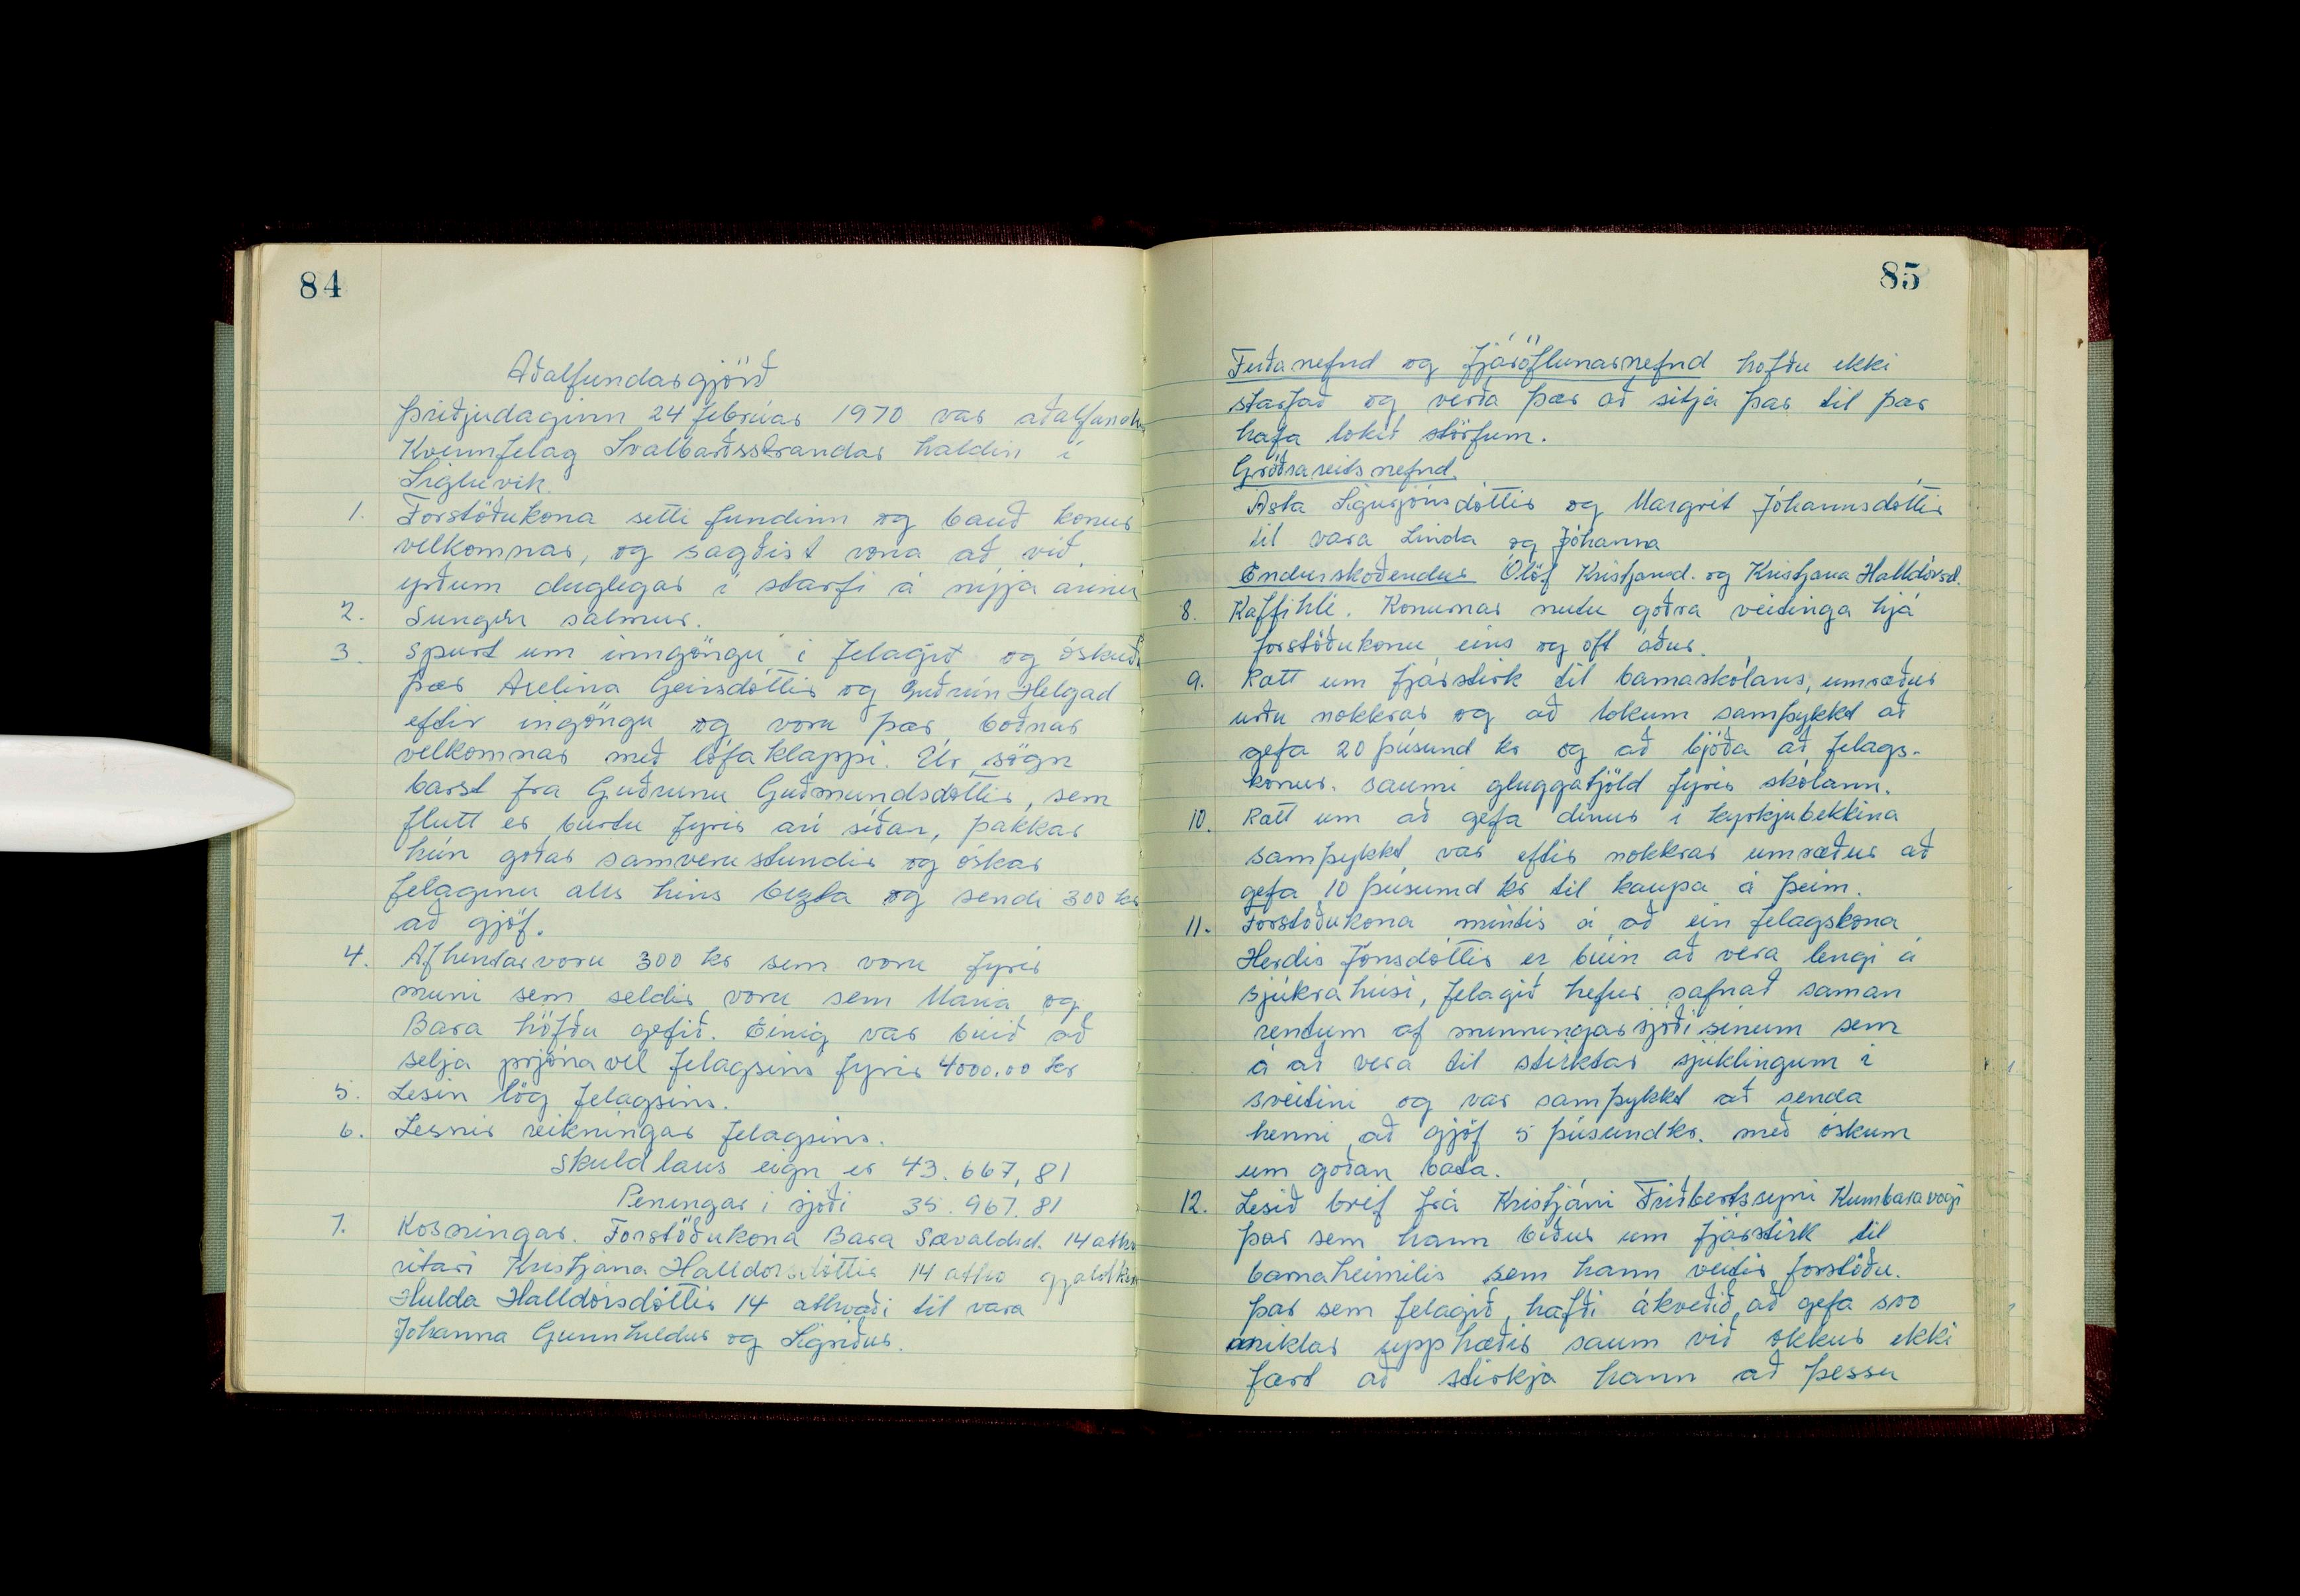 84
Aðalfundargjörð
Þriðjudaginn 24 febrúar 1970 var aðalfundur
Kvennfelag Svalbarðsstrandar haldin í
Sigluvík.
1. Forstöðukona setti fundinn og bauð konur
velkomnar, og sagðist vona að við
yrðum duglegar í starfi á nýja árinu
2. Sungin salmur.
3. Spurt um inngöngu í felagið og óskuðu
þær Axelina Geirsdóttir og Guðrún Helgad
eftir ingöngu og voru þær boðnar
velkomnar með lófaklappi. Úr sögn
barst fra Guðrunu Guðmundsdóttir, sem
flutt er burtu fyrir ári síðan, þakkar
hún goðar samverustundir og óskar
felaginu alls hins bezta og sendi 300 kr
að gjöf.
4. Afhentar voru 300 kr sem voru fyrir
muni sem seldir voru sem Maria og
Bara höfðu gefið. Einig var búið að
selja prjónavel felagsins fyrir 4000.00 kr
5. Lesin lög felagsins.
6. Lesnir reikningar felagsins.
Skuldlaus eign er 43.667,81
Peningar i sjoði 35.967.81
7. Kosningar. Forstöðukona Bara Sævaldsd. 14 atkv
ritari Kristjana Halldorsdóttir 14 atkv gjaldkeri
Hulda Halldórsdóttir 14 atkvæði til vara
Johanna Gunnhildur og Sigriður.
85
Ferðanefnd og fjáröflunarnefnd hofðu ekki
starfað og verða þær að sitja þar til þær
hafa lokið störfum.
Gróðrareitsnefnd
Asta Sigurjónsdóttir og Margrét Jóhannsdóttir
til vara Linda og Jóhanna
Endurskoðendur Ólöf Kristjansd. og Kristjana Halldórsd.
8. Kaffihlé. Konurnar nutu goðra veitinga hjá
forstöðukonu eins og oft áður.
9. Rætt um fjárstirk til barnaskólans, umræður
urðu nokkrar og að lokum samþykkt að
gefa 20 þúsund kr og að bjóða að felags-
konur. saumi gluggatjöld fyrir skólann.
10. Rætt um að gefa dínur i kyrkjubekkina
samþykkt var eftir nokkrar umræður að
gefa 10 þúsund kr til kaupa á þeim.
11. Forstoðukona mintis á að ein felagskona
Herdis Jónsdóttir er búin að vera lengi á
sjúkrahúsi, felagið hefur safnað saman
rentum af minningarsjóði sinum sem
á að vera til stirktar sjúklingum i
sveitini og var samþykkt að senda
henni að gjöf 5 þúsundkr. með óskum
um goðan bata.
12. Lesið bréf frá Kristjáni Friðbertssyni Kumbaravogi
þar sem hann biður um fjárstirk til
barnaheimilis sem hann veitir forstöðu.
þar sem felagið hafði ákveðið að gefa svo
miklar upphæðir saum við okkur ekki
fært að stirkja hann að þessu